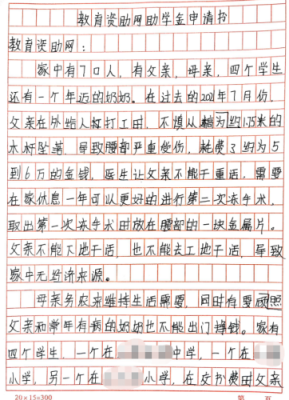 教育资助网助学金申请书
教育资助网：
家中有7口人，有父亲，母亲，四个学生
还有一个年迈的奶奶。在过去的2021年7月份，
父亲在外给人打工时，不慎从约1.5米的
水杯坠落，导致腰部严重受伤，花费了约为5
到6万的金钱，医生让父亲不能干重活，需要
在家休息一年可以更好的进行第二次手术，
取出第一次手术时放在腰部的一块金属片。
父亲不能下地干活，也不能去工地干活，导致
家中无经济来源。
母亲务农来维持生活需要，同时有要照
父亲和常年有病的奶奶也不能出门挣钱。家有
四个学生，一个在 中学，一个在
小学，另一个在 小学，在 父亲
20×15=300
第 页